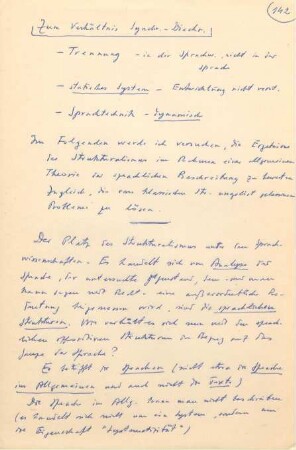 142
Zum Verhältnis Synchr.-Diachr.
- Trennung - in der Sprachw., nicht in der
Sprache
- stabiles System - Entwicklung nicht
- Sprachtechnik - dynamisch
Im Folgenden werde ich versuchen, die Ergebnisse
des Strukturalismus im Rahmen einer allgemeinen
Theorie der sprachlichen Beschreibung zu bewerten
Zugleich, die vom klassischen Str. ungelöst gelassenen
Probleme zu lösen.
Der Platz des Strukturalismus unter den Sprach-
wissenschaften. Es handelt sich um Analyse der
Sprache, der untersuchte Gegenstand, dem
man sagen mit Recht - eine außerordentliche Be-
deutung beigemessen wird, sind die sprachlichen
Strukturen. Wie verhält es sich nun mit den sprach-
lichen Strukturen in Bezug auf das
Ganze der Sprache?
Es betrifft die Sprachen (nicht etwa die Sprache
im Allgemeinen und auch nicht die Texte)
Die Sprache im Allg. kann man nicht beschreiben
(es handelt sich nicht um ein System, sondern um
die Eigenschaft "Systematizität")